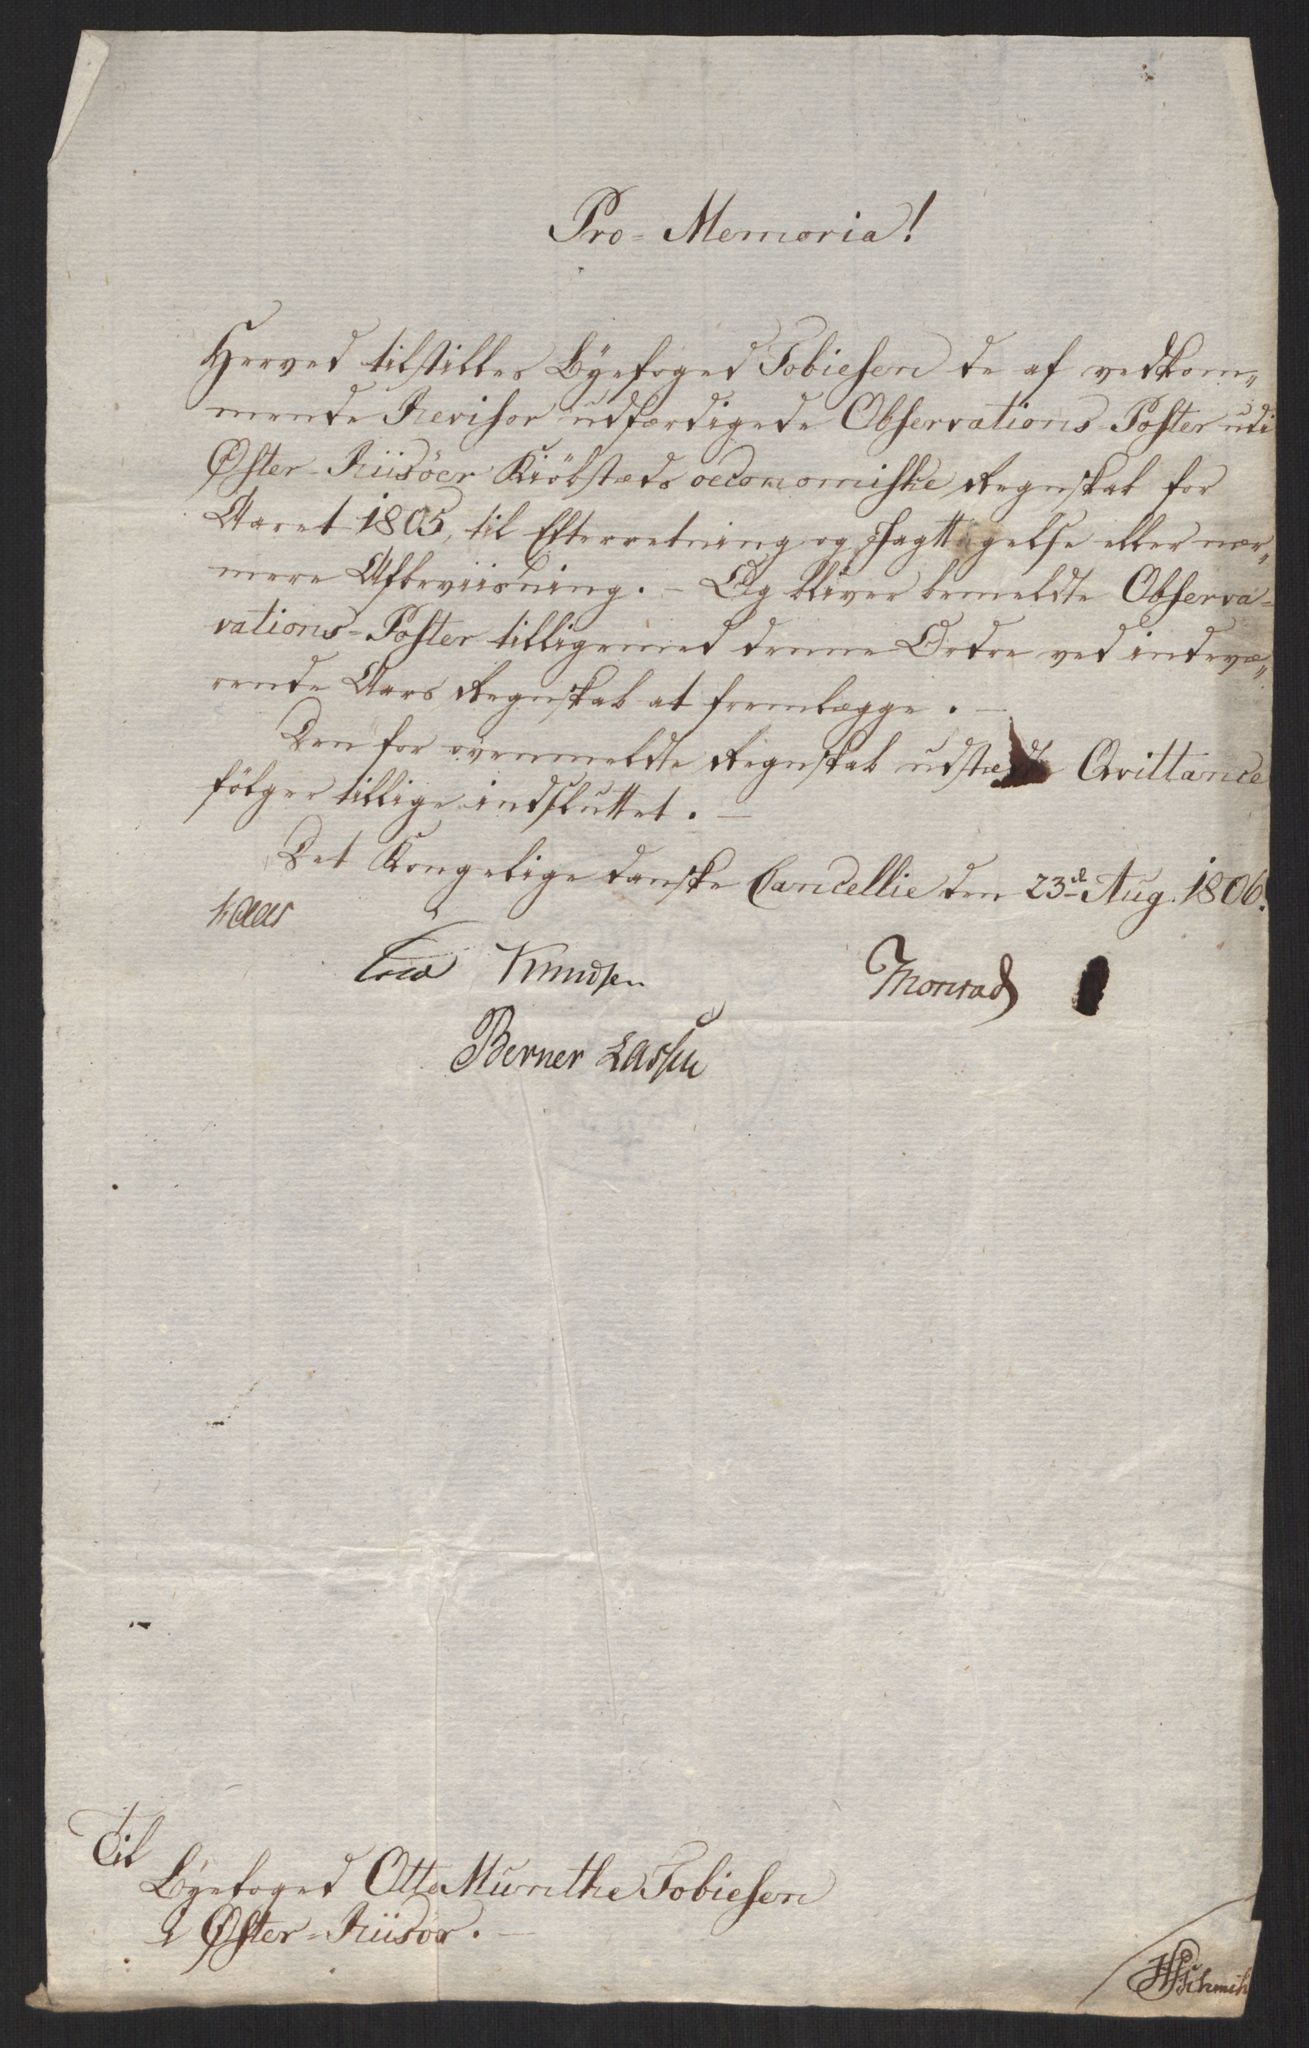 Pro-Memoria!
Herved tilstilles Byefoged Tobiesen de af vedkom„
mende Revisor udfærdigede Observations-Poster udi
Øster-Riisöer Kiöbstæds oeconomiske Regnskab for
Aaret 1805, til Efterretning og Iagttagelse eller nær„
mere Afbeviisning. – Og bliver bemeldte Observa-
vations-Poster tilligemed denne Ordre ved indevæ„
rende Aars Regnskab at fremlægge. –
Den for ovenmeldte Regnskab udstædte Qvittance
fölger tillige indsluttet. –
Det Kongelige danske Cancellie den 23d Aug. 1806.
Kaas
Knudsen Monrad
Berner Lassen
Til
Byefoged Otto Munthe Tobiesen
i Øster-Riisör. –
Schmidt